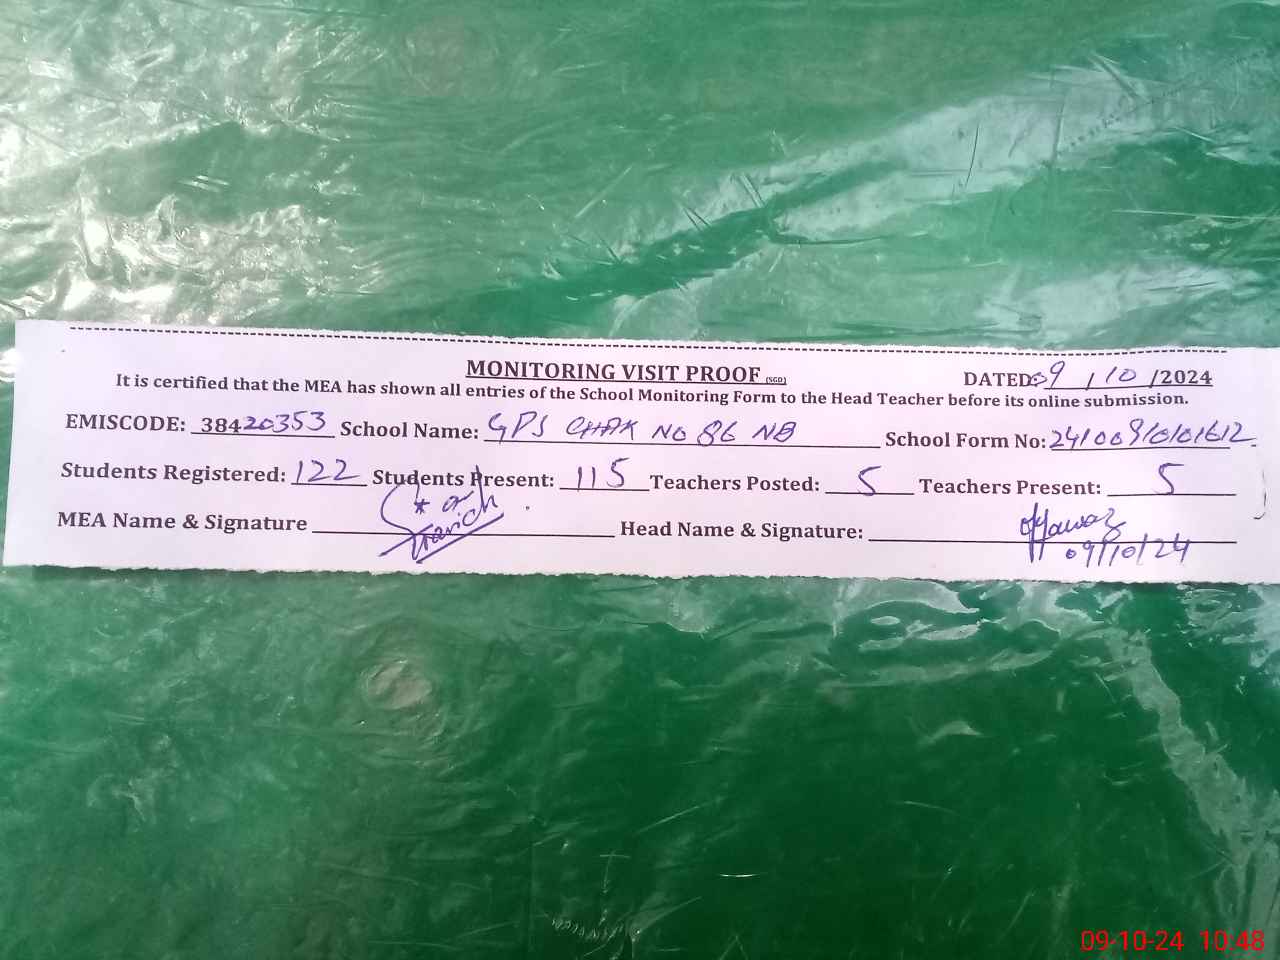 MONITORING VISIT PROOF (SGD)
DATED: 09 / 10 /2024
It is certified that the MEA has shown all entries of the School Monitoring Form to the Head Teacher before its online submission.
EMISCODE: 38420353 School Name: GPS CHAK NO 86 NB School Form No: 241009/0/01612
Students Registered: 122 Students Present: 115 Teachers Posted: 5 Teachers Present: 5
MEA Name & Signature Head Name & Signature:
09/10/24
09-10-24 10:48